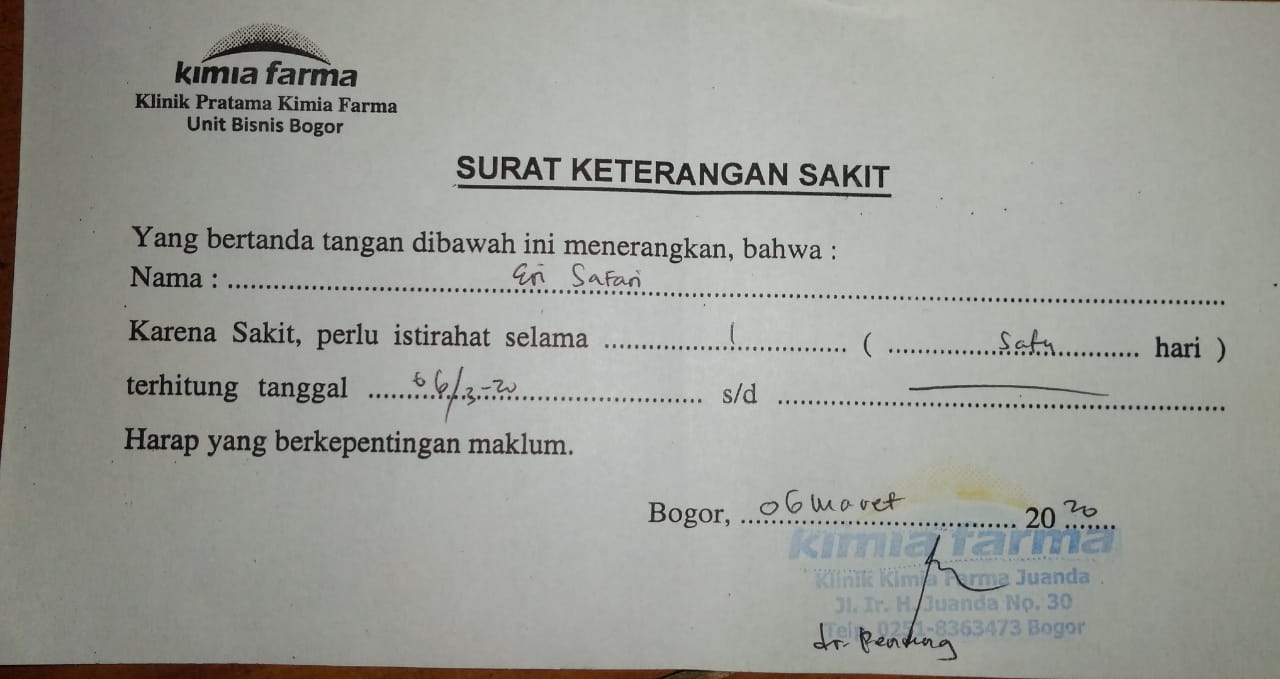 kimia farma
Klinik Pratama Kimia Farma
Unit Bisnis Bogor
SURAT KETERANGAN SAKIT
Yang bertanda tangan dibawah ini menerangkan, bahwa :
Nama : Eri Safari
Karena Sakit, perlu istirahat selama 1 ( Satu hari )
terhitung tanggal 06/3-20 s/d
Harap yang berkepentingan maklum.
Bogor, 06 Maret 2020
kimia farma
Klinik Kimia Farma Juanda
Jl. Ir. H. Juanda No. 30
Telp. 0251-8363473 Bogor
dr.